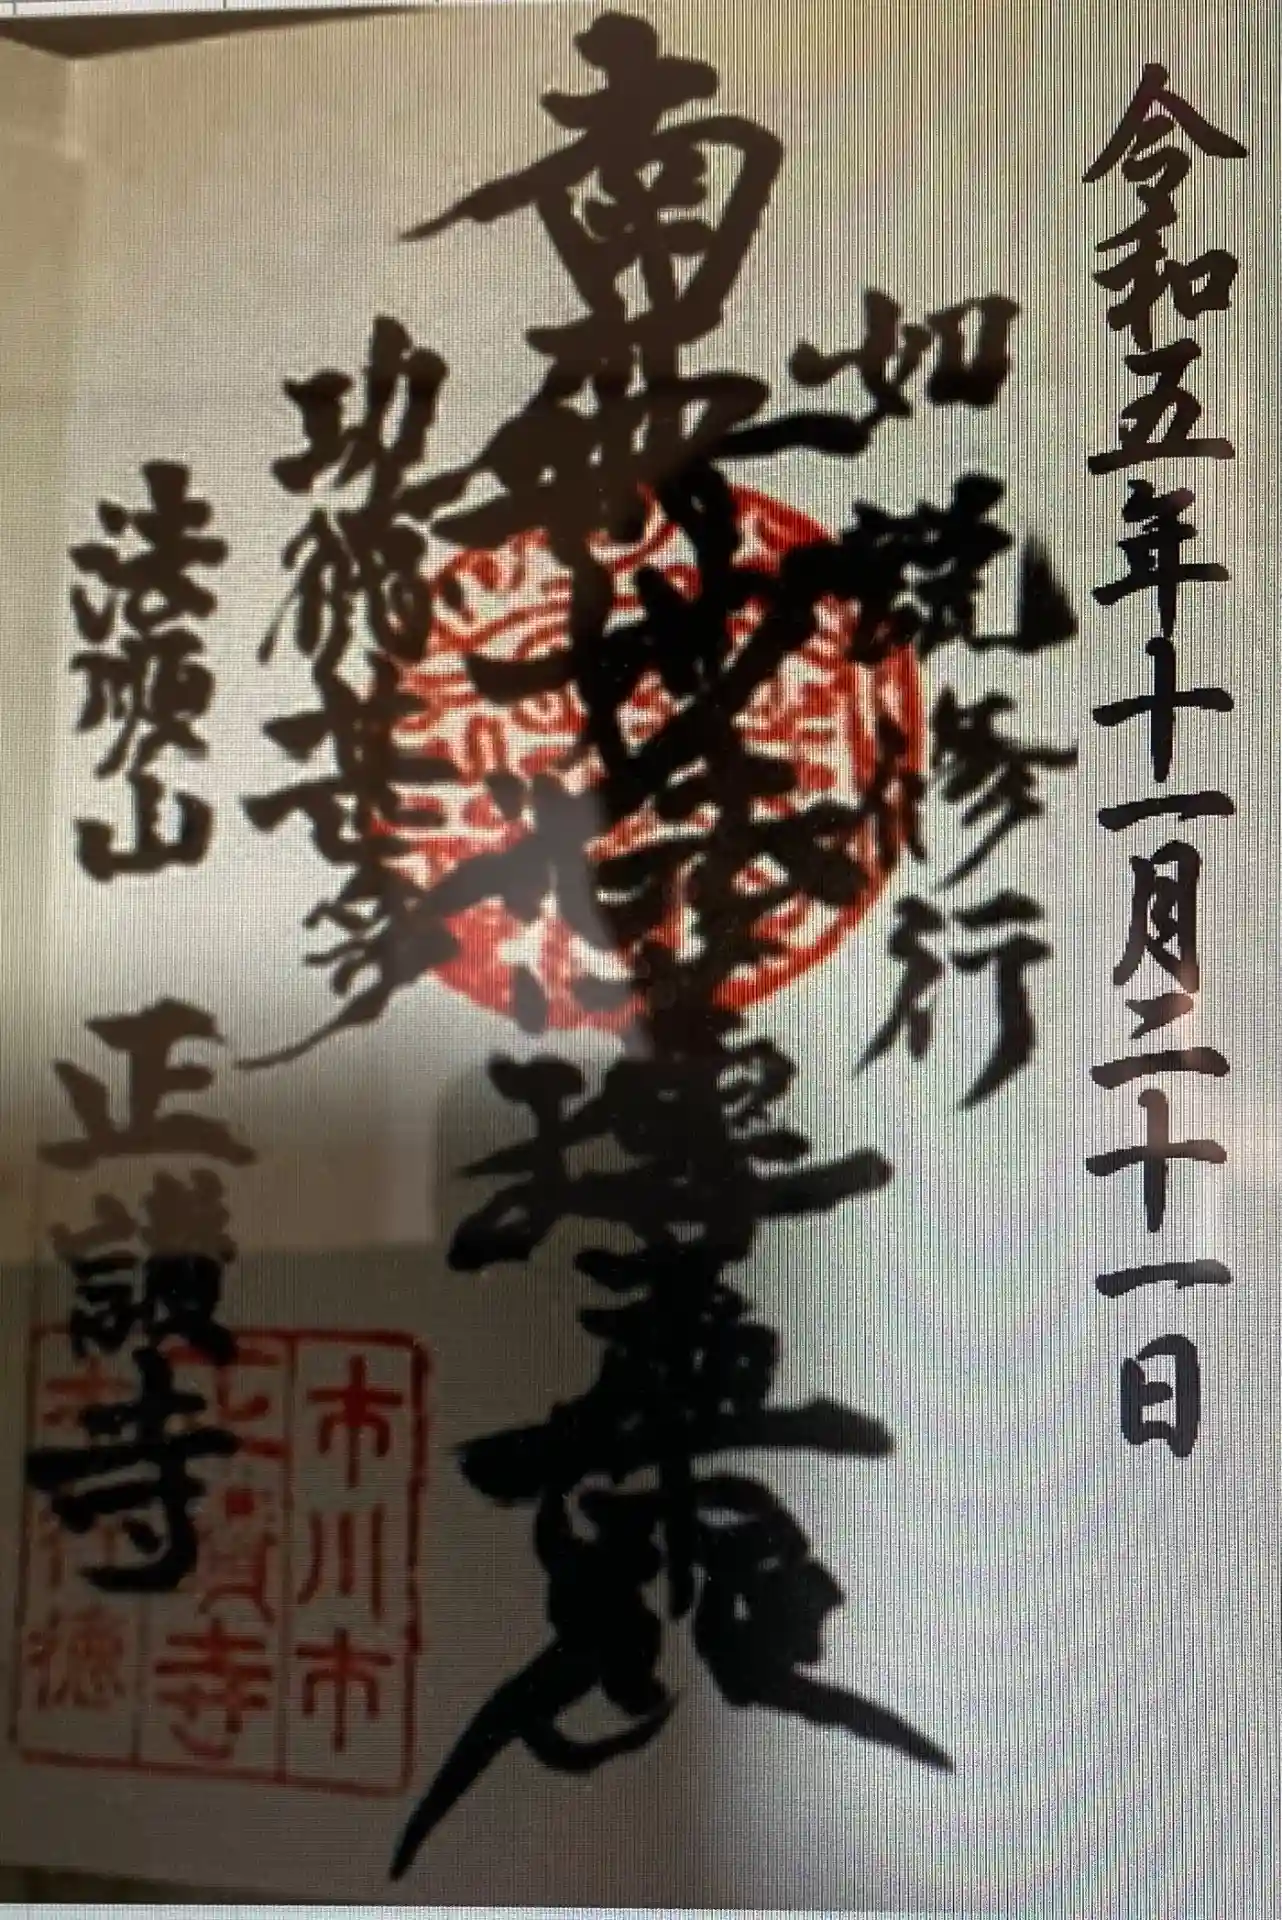 令和五年十一月二十一日
如説修行
南無妙法蓮華経
功徳甚多
法順山 正讃寺
市川市
寺
徳